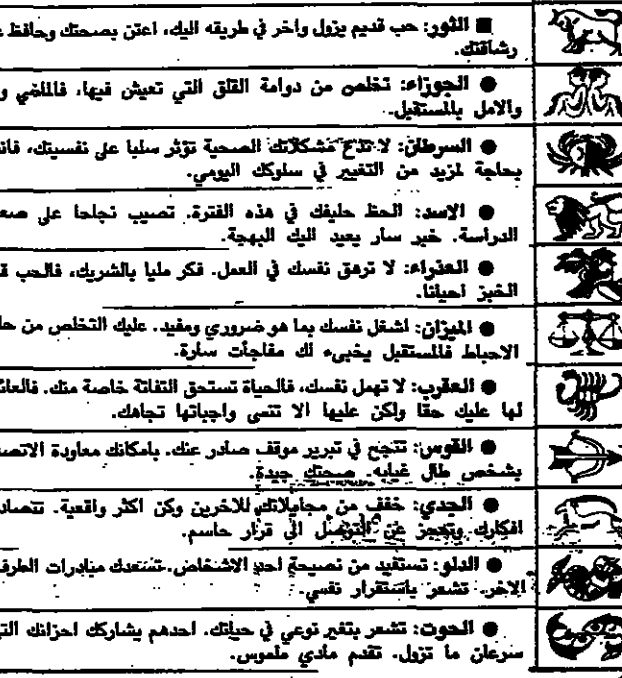 ■ الثور: حب قديم يزول وآخر في طريقه اليك، اعتن بصحتك وحافظ
رشاقتك.
● الجوزاء: تخلص من دوامة القلق التي تعيش فيها، فالماضي
والامل بالمستقبل.
● السرطان: لا تدع مشكلاتك الصحية تؤثر سلبا على نفسيتك،
بحاجة لمزيد من التغيير في سلوكك اليومي.
● الاسد: الحظ حليفك في هذه الفترة. تصيب نجاحا على
الدراسة. خبر سار يعيد اليك البهجة.
● العذراء: لا ترهق نفسك في العمل. فكر مليا بالشريك، فالحب
الخبز احيانا.
● الميزان: اشغل نفسك بما هو ضروري ومفيد. عليك التخلص من
الاحباط فالمستقبل يخبىء لك مفاجآت سارة.
● العقرب: لا تهمل نفسك، فالحياة تستحق التفاتة خاصة منك.
لها عليك حقا ولكن عليها الا تنسى واجباتها تجاهك.
● القوس: تنجح في تبرير موقف صادر عنك. بامكانك معاودة
بشخص طال غيابه. صحتك جيدة.
● الجدي: خفف من مجاملاتك للاخرين وكن اكثر واقعية.
افكارك وتعجز عن التوصل الى قرار حاسم.
● الدلو: تستفيد من نصيحة احد الاشخاص. تسعدك مبادرات الطرف
الاخر. تشعر باستقرار نفسي.
● الحوت: تشعر بتغير نوعي في حياتك. احدهم يشاركك احزانك
سرعان ما تزول. تقدم مادي ملموس.